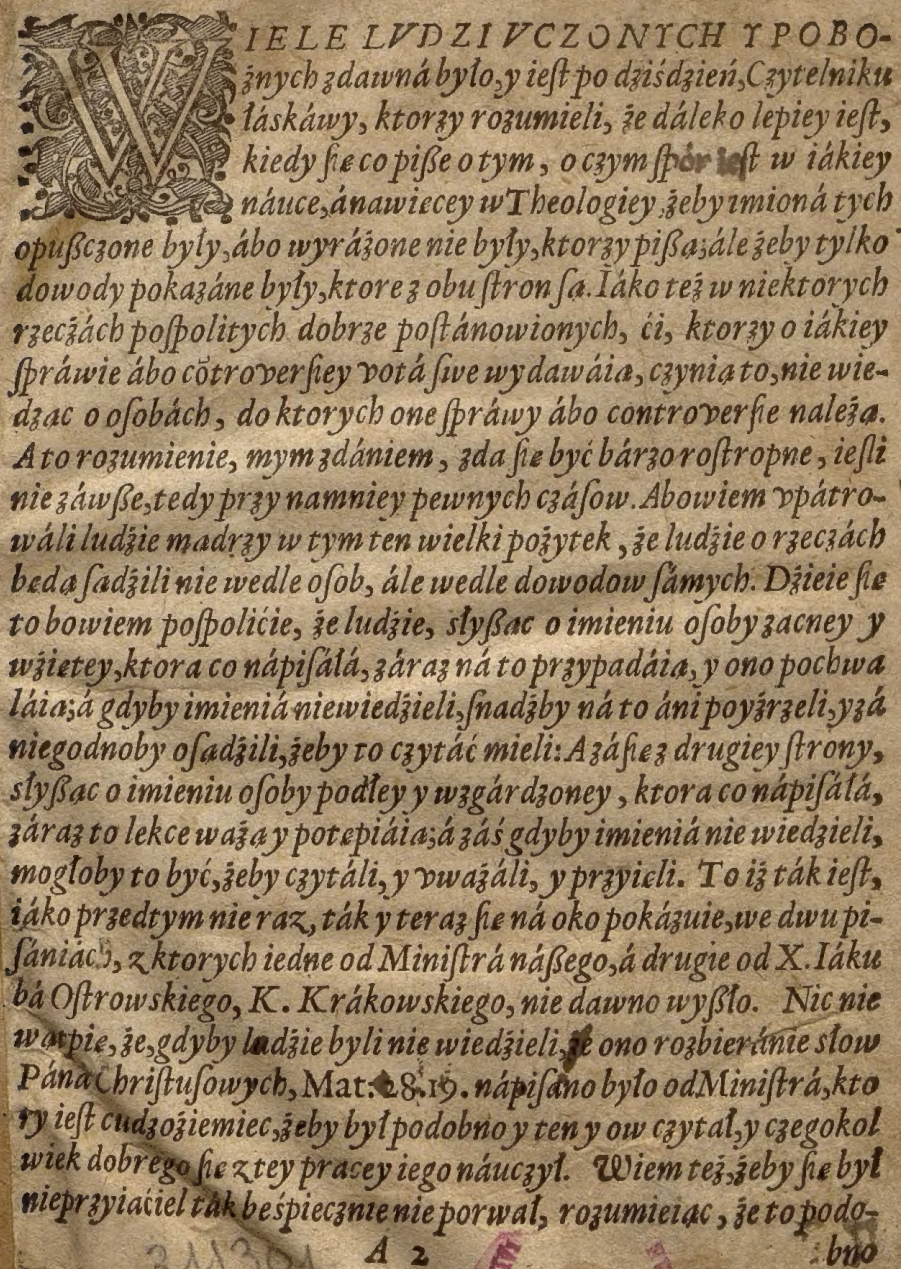 WIELE LVDZI VCZONYCH Y POBO-
żnych zdawná było, y iest po dziśdzień, Czytelniku
łáskáwy, ktorzy rozumieli, że dáleko lepiey iest,
kiedy się co pisze o tym, o czym spór iest w iákiey
náuce, ánawięcey w Theologiey, żeby imioná tych
opuszczone były, ábo wyráżone nie były, ktorzy piszą; ále żeby tylko
dowody pokazáne były, ktore z obu stron są. Iáko też w niektorych
rzeczách pospolitych dobrze postánowionych, ći, ktorzy o iákiey
spráwie ábo cõtroversiey votá swe wydawáią, czynią to, nie wie-
dząc o osobách, do ktorych one spráwy ábo controversie należą.
A to rozumienie, mym zdániem, zda się być bárzo rostropne, iesli
nie záwsze, tedy przy namniey pewnych czásow. Abowiem vpátro-
wáli ludźie mądrzy w tym ten wielki pożytek, że ludźie o rzeczách
będą sądźili nie wedle osob, ále wedle dowodow sámych. Dźieie się
to bowiem pospolićie, że ludźie, słysząc o imieniu osoby zacney y
wźiętey, ktora co nápisáłá, záraz ná to przypadáią, y ono pochwa
láią; á gdyby imieniá niewiedźieli, snadźby ná to áni poyźrzeli, y zá
niegodnoby osądźili, żeby to czytáć mieli: A záśię z drugiey strony,
słysząc o imieniu osoby podłey y wzgárdzoney, ktora co nápisáłá,
záraz to lekce ważą y potępiáią; á záś gdyby imieniá nie wiedzieli,
mogłoby to być, żeby czytáli, y vważáli, y przyięli. To iż ták iest,
iáko przedtym nie raz, ták y teraz się ná oko pokázuie, we dwu pi-
sániách, z ktorych iedne od Ministrá nászego, á drugie od X. Iáku
bá Ostrowskiego, K. Krákowskiego, nie dawno wyszło. Nic nie
wątpię, że, gdyby ludźie byli nie wiedźieli, że ono rozbieránie słow
Páná Christusowych, Mat. 28. 19. nápisano było od Ministrá, kto
ry iest cudzoźiemiec, żeby był podobno y ten y ow czytał, y czegokol
wiek dobrego się z tey pracey iego náuczył. Wiem też, żeby się był
nieprzyiaćiel ták beśpiecznie nie porwał, rozumieiąc, że to podo-
A 2 bno
311301